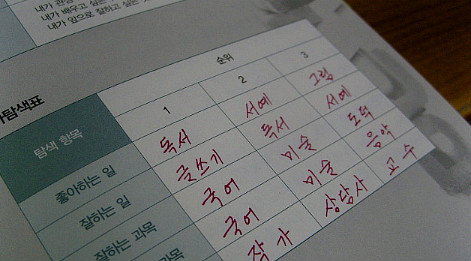 내가 배우고 싶은
내가 앞으로 잘하고 싶은
탐색표
탐색 항목 순위
1 2 3
좋아하는 일 독서 서예 그림
잘하는 일 글쓰기 독서 서예
잘하는 과목 국어 미술 도덕
과목 국어 미술 음악
작가 상담사 교수